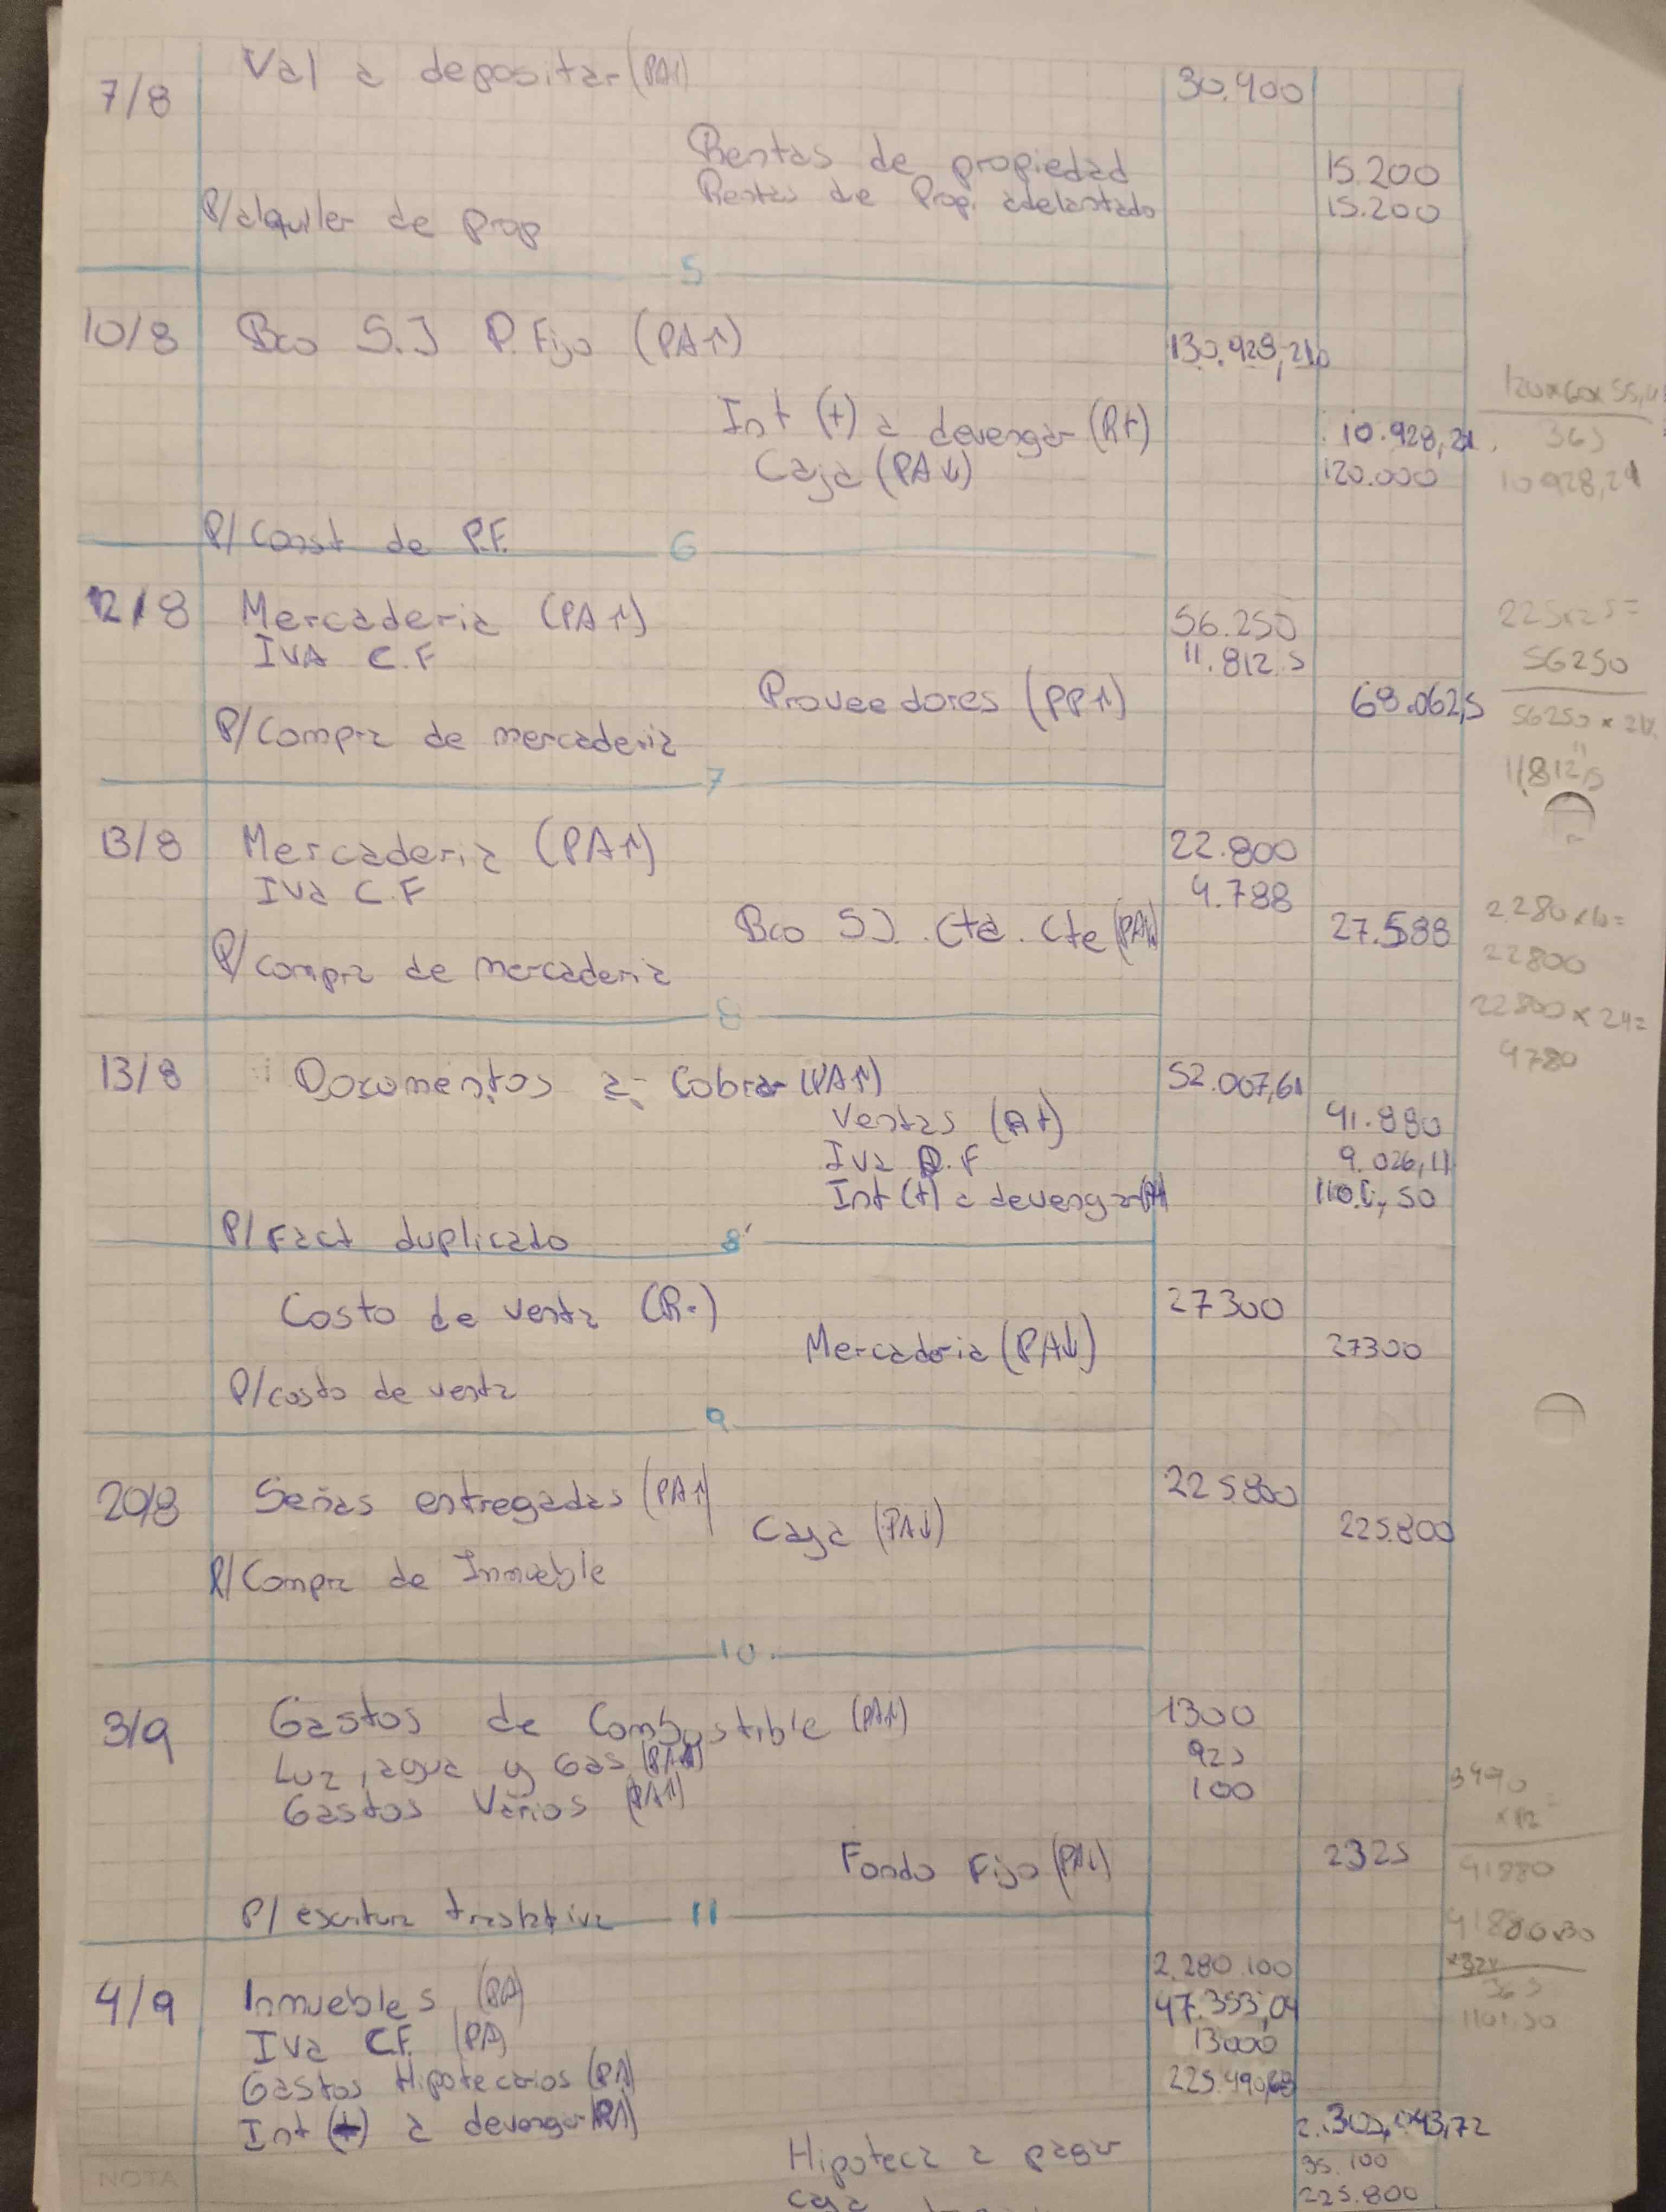 7/8 Val a depositar (PA↑) 30.400
Rentas de propiedad 15.200
Rentas de Prop. adelantado 15.200
P/alquiler de prop
5
10/8 Bco S.J P. Fijo (PA↑) 130.928,21
Int (+) a devengar (R+) 10.928,21
Caja (PA↓) 120.000
P/ Const de P.F.
6
12/8 Mercaderia (PA↑) 56.250
IVA C.F 11.812.5
Proveedores (PP↑) 68.062,5
P/ Compra de mercaderia
7
13/8 Mercaderia (PA↑) 22.800
Iva C.F 4.788
Bco SJ. Cta. Cte (PA↓) 27.588
P/ compra de mercaderia
8
13/8 Documentos a Cobrar (PA↑) 52.007,61
Ventas (R+) 41.880
Iva D.F 9.026,11
Int (+) a devengar (R+) 1101,50
P/ Fact duplicado
8'
Costo de venta (R-) 27300
Mercaderia (PA↓) 27300
P/costo de venta
9
20/8 Señas entregadas (PA↑) 225.800
Caja (PA↓) 225.800
P/ Compra de Inmueble
10.
3/9 Gastos de Combustible (PA↑) 1300
Luz, agua y Gas 925
Gastos Varios (PA↑) 100
Fondo Fijo (PA↓) 2325
P/ escritura traslativa
11
4/9 Inmuebles (PA) 2.280.100
Iva C.F. (PA) 47.353,04
Gastos Hipotecarios 13000
Int a devengar 225.490,68
2.305.043,72
Hipoteca a pagar 35.100
Caja 225.800
NOTA
365
10928,21
225x25=
56250
56250 x 21%
11812,5
2.280 x 10=
22800
22800 x 21=
4780
3490
x 12
41880
41880x30
365
1101.50